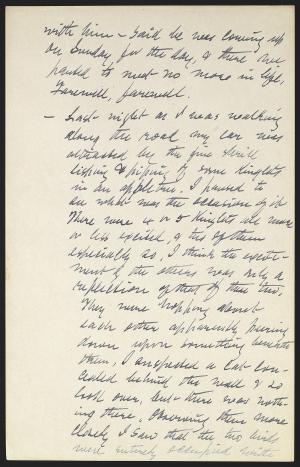 with him - Said he was coming up
on Sunday for the day, & there we
parted to meet no more in life,
Farewell, farewell.
- Last night as I was walking
along the road my ear was
attracted by the fine shrill
lisping & piping of some kinglets
in an apple tree. I paused to
see what was the occasion of it
There were 4 or 5 kinglets all more
or less excited, & two of them
especially so, I think the excite-
ment of the others was only a
reflection of that of these two.
They were hopping about
each other apparently peering
down upon something beneath
them, I suspected a cat con-
cealed behind the wall & so
looked over, but there was noth-
ing there, Observing them more
closely I saw that the two birds
were entirely occupied with